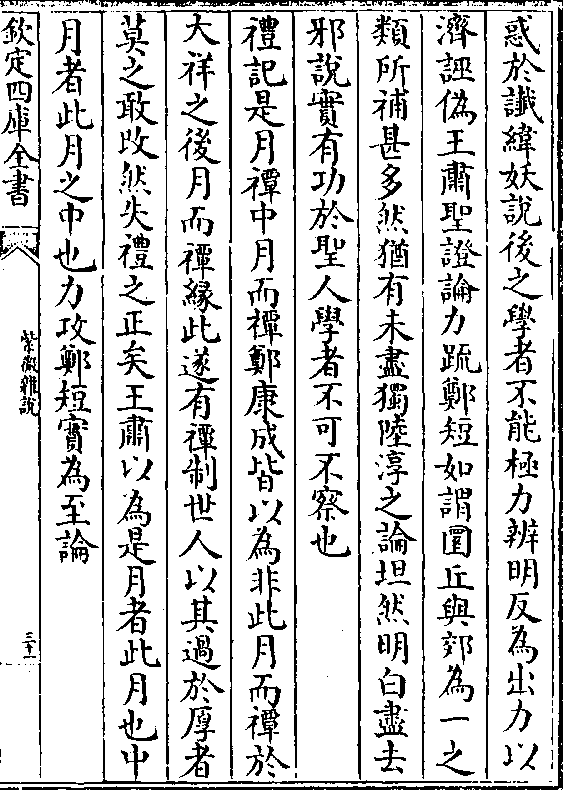 惑於讖緯妖說後之學者不能極力辨明反為出力以
濟誣偽王肅聖證論力䟽鄭短如謂圜丘與郊為一之
類所補甚多然猶有未盡獨陸淳之論坦然明白盡去
邪說實有功於聖人學者不可不察也
禮記是月禫中月而禫鄭康成皆以為非此月而禫於
大祥之後月而禫緣此遂有禫制世人以其過於厚者
莫之敢改然失禮之正矣王肅以為是月者此月也中
月者此月之中也力攻鄭短實為至論
欽定四庫全書
紫微雜說
三十一